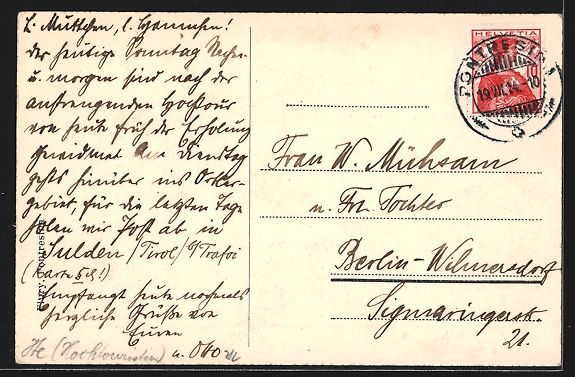 L. Muttchen, l. Hannchen!
Der heutige Sonntag Nachm.
u. morgen sind nach der
anstrengenden Hochtour
von heute früh der Erholung
gewidmet. Am Dienstag
gehts hinüber ins Ortler-
gebiet, für die letzten Tage
holen wir Post ab in
Sulden (Tirol) b/ Trafoi
Empfangt heute nochmals
herzliche Grüße von
Euren
(Hochtouristen) u. Otto
Pontresina
HELVETIA
10
PONTRESINA
19.VII.14. 10
Frau W. Mühsam
u. Frl. Tochter
Berlin-Wilmersdorf
Sigmaringerstr.
21.